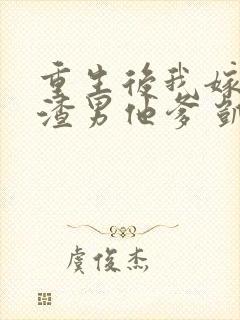 重生後我嫁
渣男他爹
虞俊杰